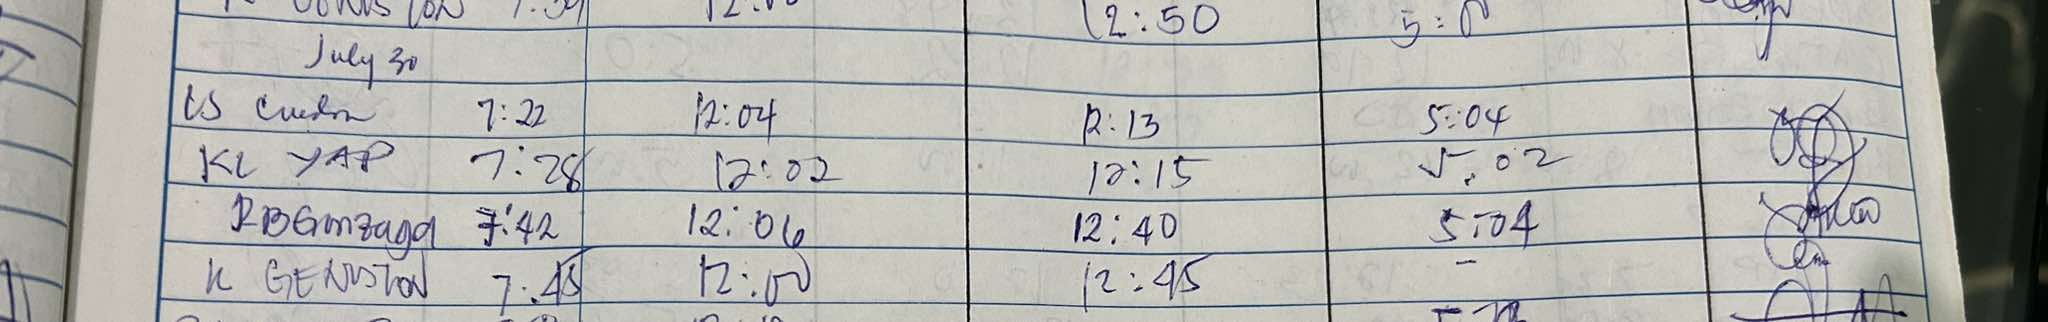 12:50 5:0
July 30
7:22 12:04 12:13 5:04
KL YAP 7:28 12:02 12:15 5:02
RB Gonzaga 7:42 12:06 12:40 5:04
K GENISTON 7:45 12:00 12:45 -